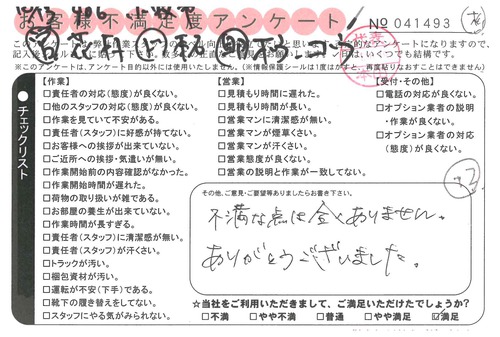 お客様不満足度アンケート
No 041493
【作業】
□責任者の対応(態度)が良くない。
□他のスタッフの対応(態度)が良くない。
□作業を見ていて不安がある。
□責任者(スタッフ)に好感が持てない。
□お客様への挨拶が出来ていない。
□ご近所への挨拶・気遣いが無い。
□作業開始前の内容確認がなかった。
□作業開始時間が遅れた。
□荷物の取り扱いが雑である。
□お部屋の養生が出来ていない。
□作業時間が長すぎる。
□責任者(スタッフ)に清潔感が無い。
□責任者(スタッフ)が汗くさい。
□トラックが汚い。
□梱包資材が汚い。
□運転が不安(下手)である。
□靴下の履き替えをしてない。
□スタッフにやる気がみられない。
【営業】
□見積もり時間に遅れた。
□見積もり時間が長い。
□営業マンに清潔感が無い。
□営業マンが煙草くさい。
□営業マンが汗くさい。
□営業態度が良くない。
□営業の説明と作業が一致してない。
【受付・その他】
□電話の対応が良くない。
□オプション業者の説明
・作業が良くない。
□オプション業者の対応
(態度)が良くない。
チェックリスト
その他、ご意見・ご要望等ありましたらお書き下さい。
不満な点は全くありません。
ありがとうございました。
☆当社をご利用いただきまして、ご満足いただけたでしょうか?
□不満 □やや不満 □普通 □やや満足 ☑満足